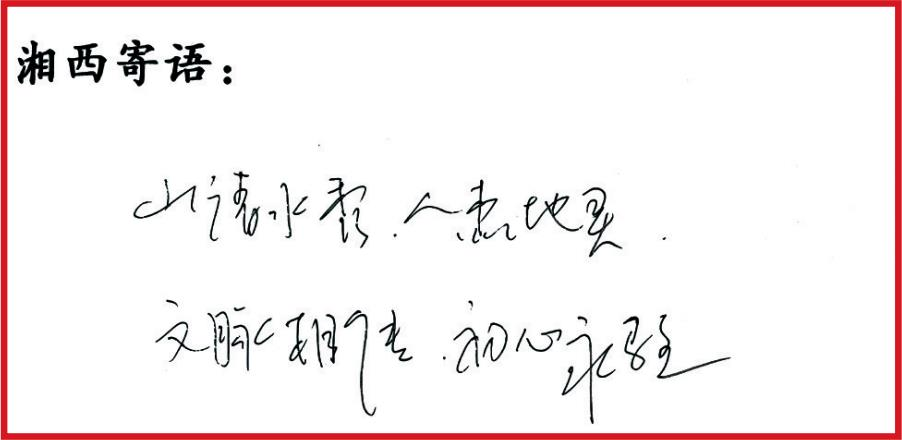 湘西寄语：
山清水秀.人杰地灵.
文脉.初心永驻